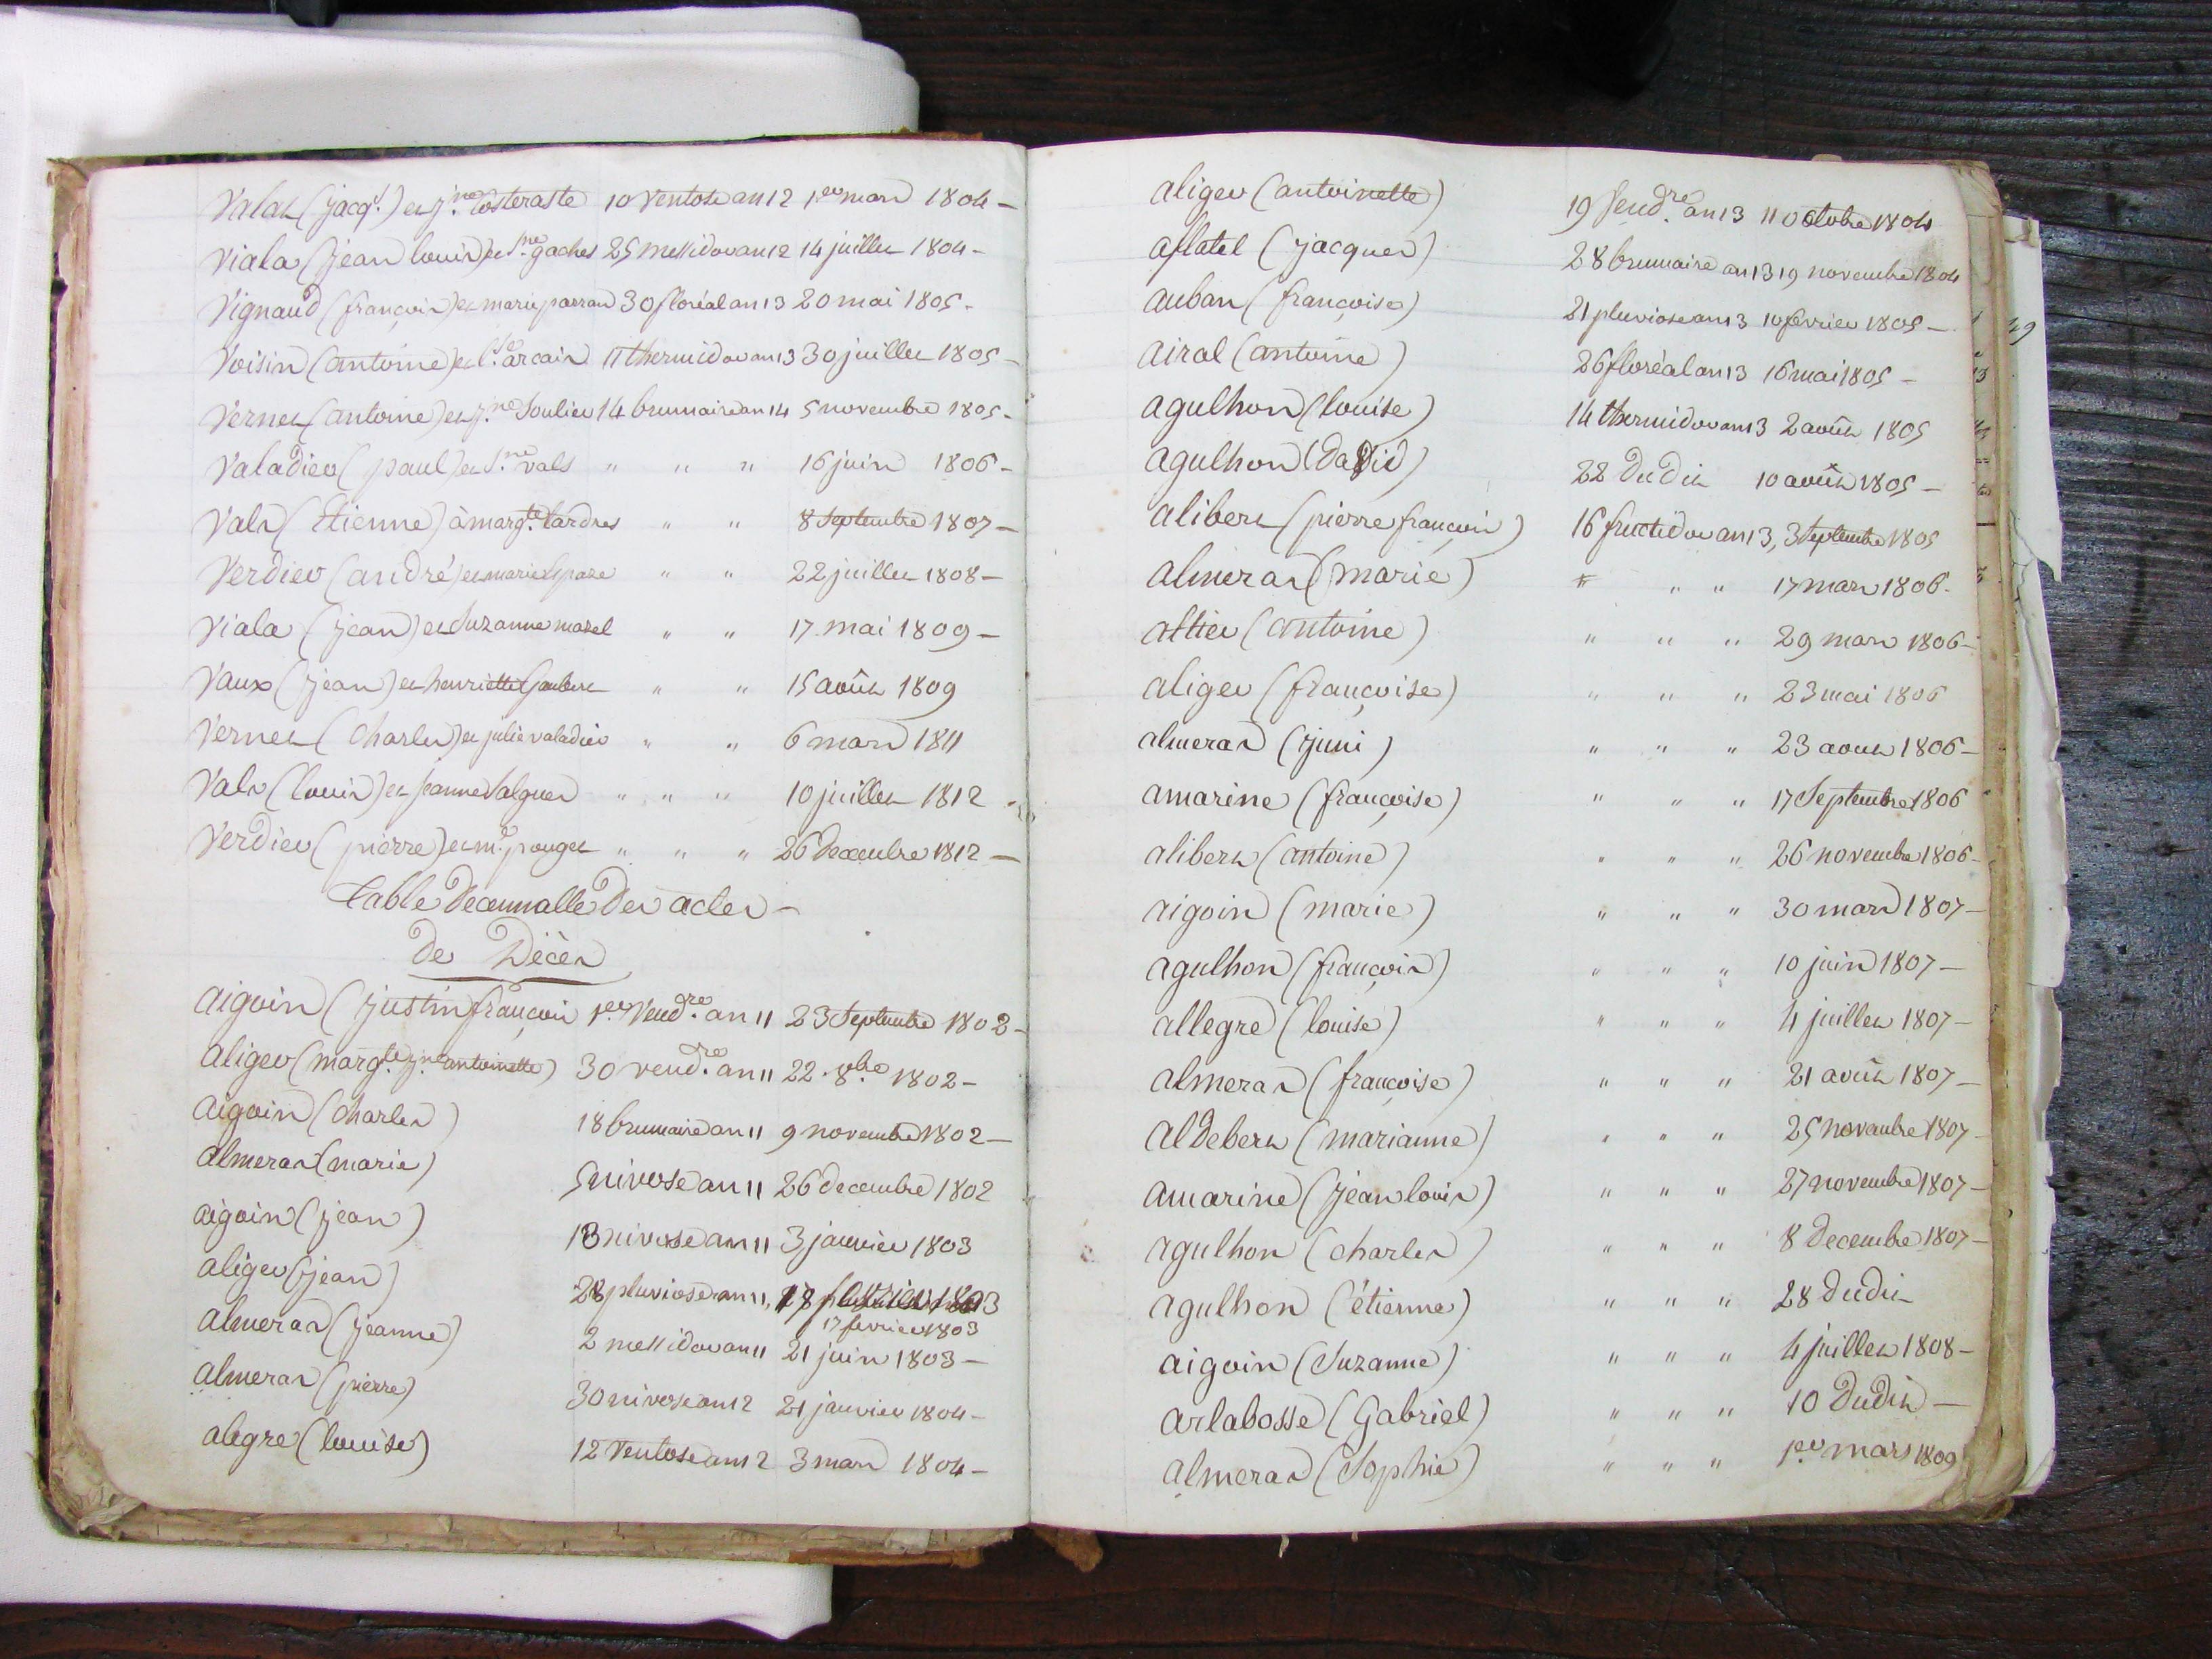 Valat (jacq.s) et j.ne Costeraste 10 Ventose an 12 1er mars 1804 -
Viala (jean louis) et S.ne gaches 25 Messidor an 12 14 juillet 1804 -
Vignaud (françois) et marie parran 30 floréal an 13 20 mai 1805 -
Voisin (antoine) et arcais 11 thermidor an 13 30 juillet 1805 -
Vernet (antoine) et j.ne Soulier 14 brumaire an 14 5 novembre 1805 -
Valadier (paul) et S.ne vals " " " 16 juin 1806 -
Vals (Etienne) à marg.te " " 8 Septembre 1807 -
Verdier (andré) et marie " " 22 juillet 1808 -
Viala (jean) et Suzanne mazel " " 17 mai 1809 -
Vaux (jean) et henriette Goubert " " 15 août 1809
Vernet (Charles) et julie valadier " " 6 mars 1811
Vals (louis) et jeanne Salgues " " " 10 juillet 1812
Verdier (pierre) et m.e pouget " " " 26 decembre 1812 -
Table decennalle Des actes -
De Décès
aigoin (justin françois 1er Vend.re an 11 23 Septembre 1802 -
aliger (marg.te j.ne antoinette) 30 vend.re an 11 22 8bre 1802 -
aigoin (Charles) 18 brumaire an 11 9 novembre 1802 -
almeras (marie) 5 nivose an 11 26 decembre 1802
aigoin (jean) 13 nivose an 11 3 janvier 1803
aliger (jean) 28 pluviose an 11, 1803
17 fevrier 1803
almeras (jeanne) 2 messidor an 11 21 juin 1803 -
almeras (pierre) 30 nivose an 12 21 janvier 1804 -
alegre (louise) 12 Ventose an 12 3 mars 1804 -
aliger (antoinette) 19 Vend.re an 13 11 Octobre 1804
aflatel (jacques) 28 brumaire an 13 19 novembre 1804
auban (françoise) 21 pluviose an 13 10 fevrier 1805 -
airal (antoine) 26 floréal an 13 16 mai 1805 -
agulhon (louise) 14 thermidor an 13 2 août 1805
agulhon (David) 22 Dudit 10 août 1805 -
alibert (pierre françois) 16 fructidor an 13, 3 Septembre 1805
almeras (marie) " " " 17 mars 1806 -
altier (antoine) " " " 29 mars 1806 -
aliger (françoise) " " " 23 mai 1806
almeras (juni) " " " 23 aout 1806 -
amarine (françoise) " " " 17 Septembre 1806
alibert (antoine) " " " 26 novembre 1806 -
aigoin (marie) " " " 30 mars 1807 -
agulhon (françois) " " " 10 juin 1807 -
allegre (louise) " " " 4 juillet 1807 -
almeras (françoise) " " " 21 août 1807 -
aldebert (marianne) " " " 25 novembre 1807 -
amarine (jean louis) " " " 27 novembre 1807 -
agulhon (charles) " " " 8 decembre 1807 -
agulhon (étienne) " " " 28 dudit
aigoin (Suzanne) " " " 4 juillet 1808 -
arlabosse (Gabriel) " " " 10 Dudit -
almeras (Sophie) " " " 1er mars 1809